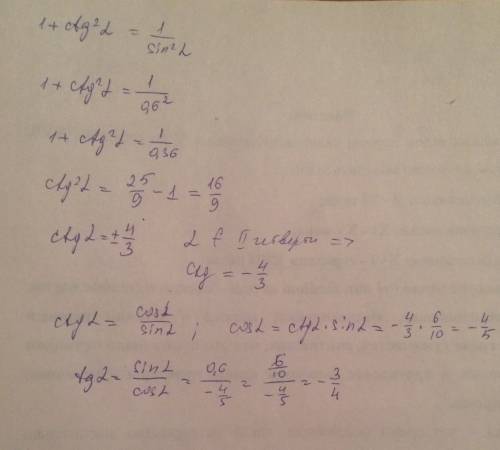 1 + ctg²α = 1/sin²α
1 + ctg²α = 1/0,6²
1 + ctg²α = 1/0,36
ctg²α = 25/9 - 1 = 16/9
ctg α = ± 4/3 α € II четверти =>
ctg = - 4/3
ctg α = cosα/sinα ; cosα = ctgα · sinα = - 4/3 · 6/10 = - 4/5
tg α = sinα/cosα = 0,6/(- 4/5) = (6/10)/(- 4/5) = - 3/4